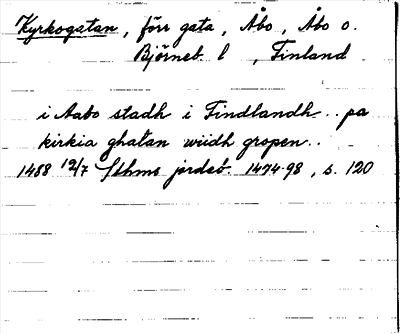 Kyrkogatan, förr gata, Åbo, Åbo o.
Björneb. l, Finland
i Aabo stadh i Findlandh.. pa
kirkia ghatan wiidh gropen..
1488 19/7 Sthms jordeb. 1474-98, s. 120